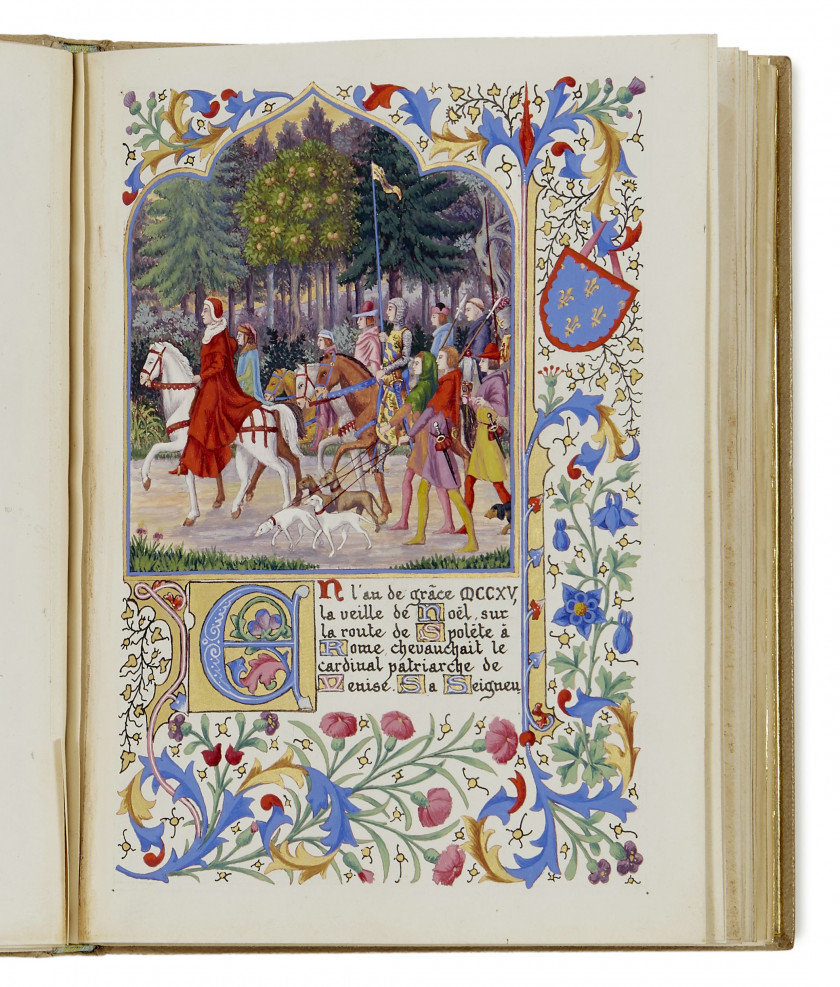 En l'an de grâce MCCXV,
la veille de Noël, sur
la route de Spolète à
Rome, chevauchait le
cardinal patriarche de
Venise. Sa Seigneu